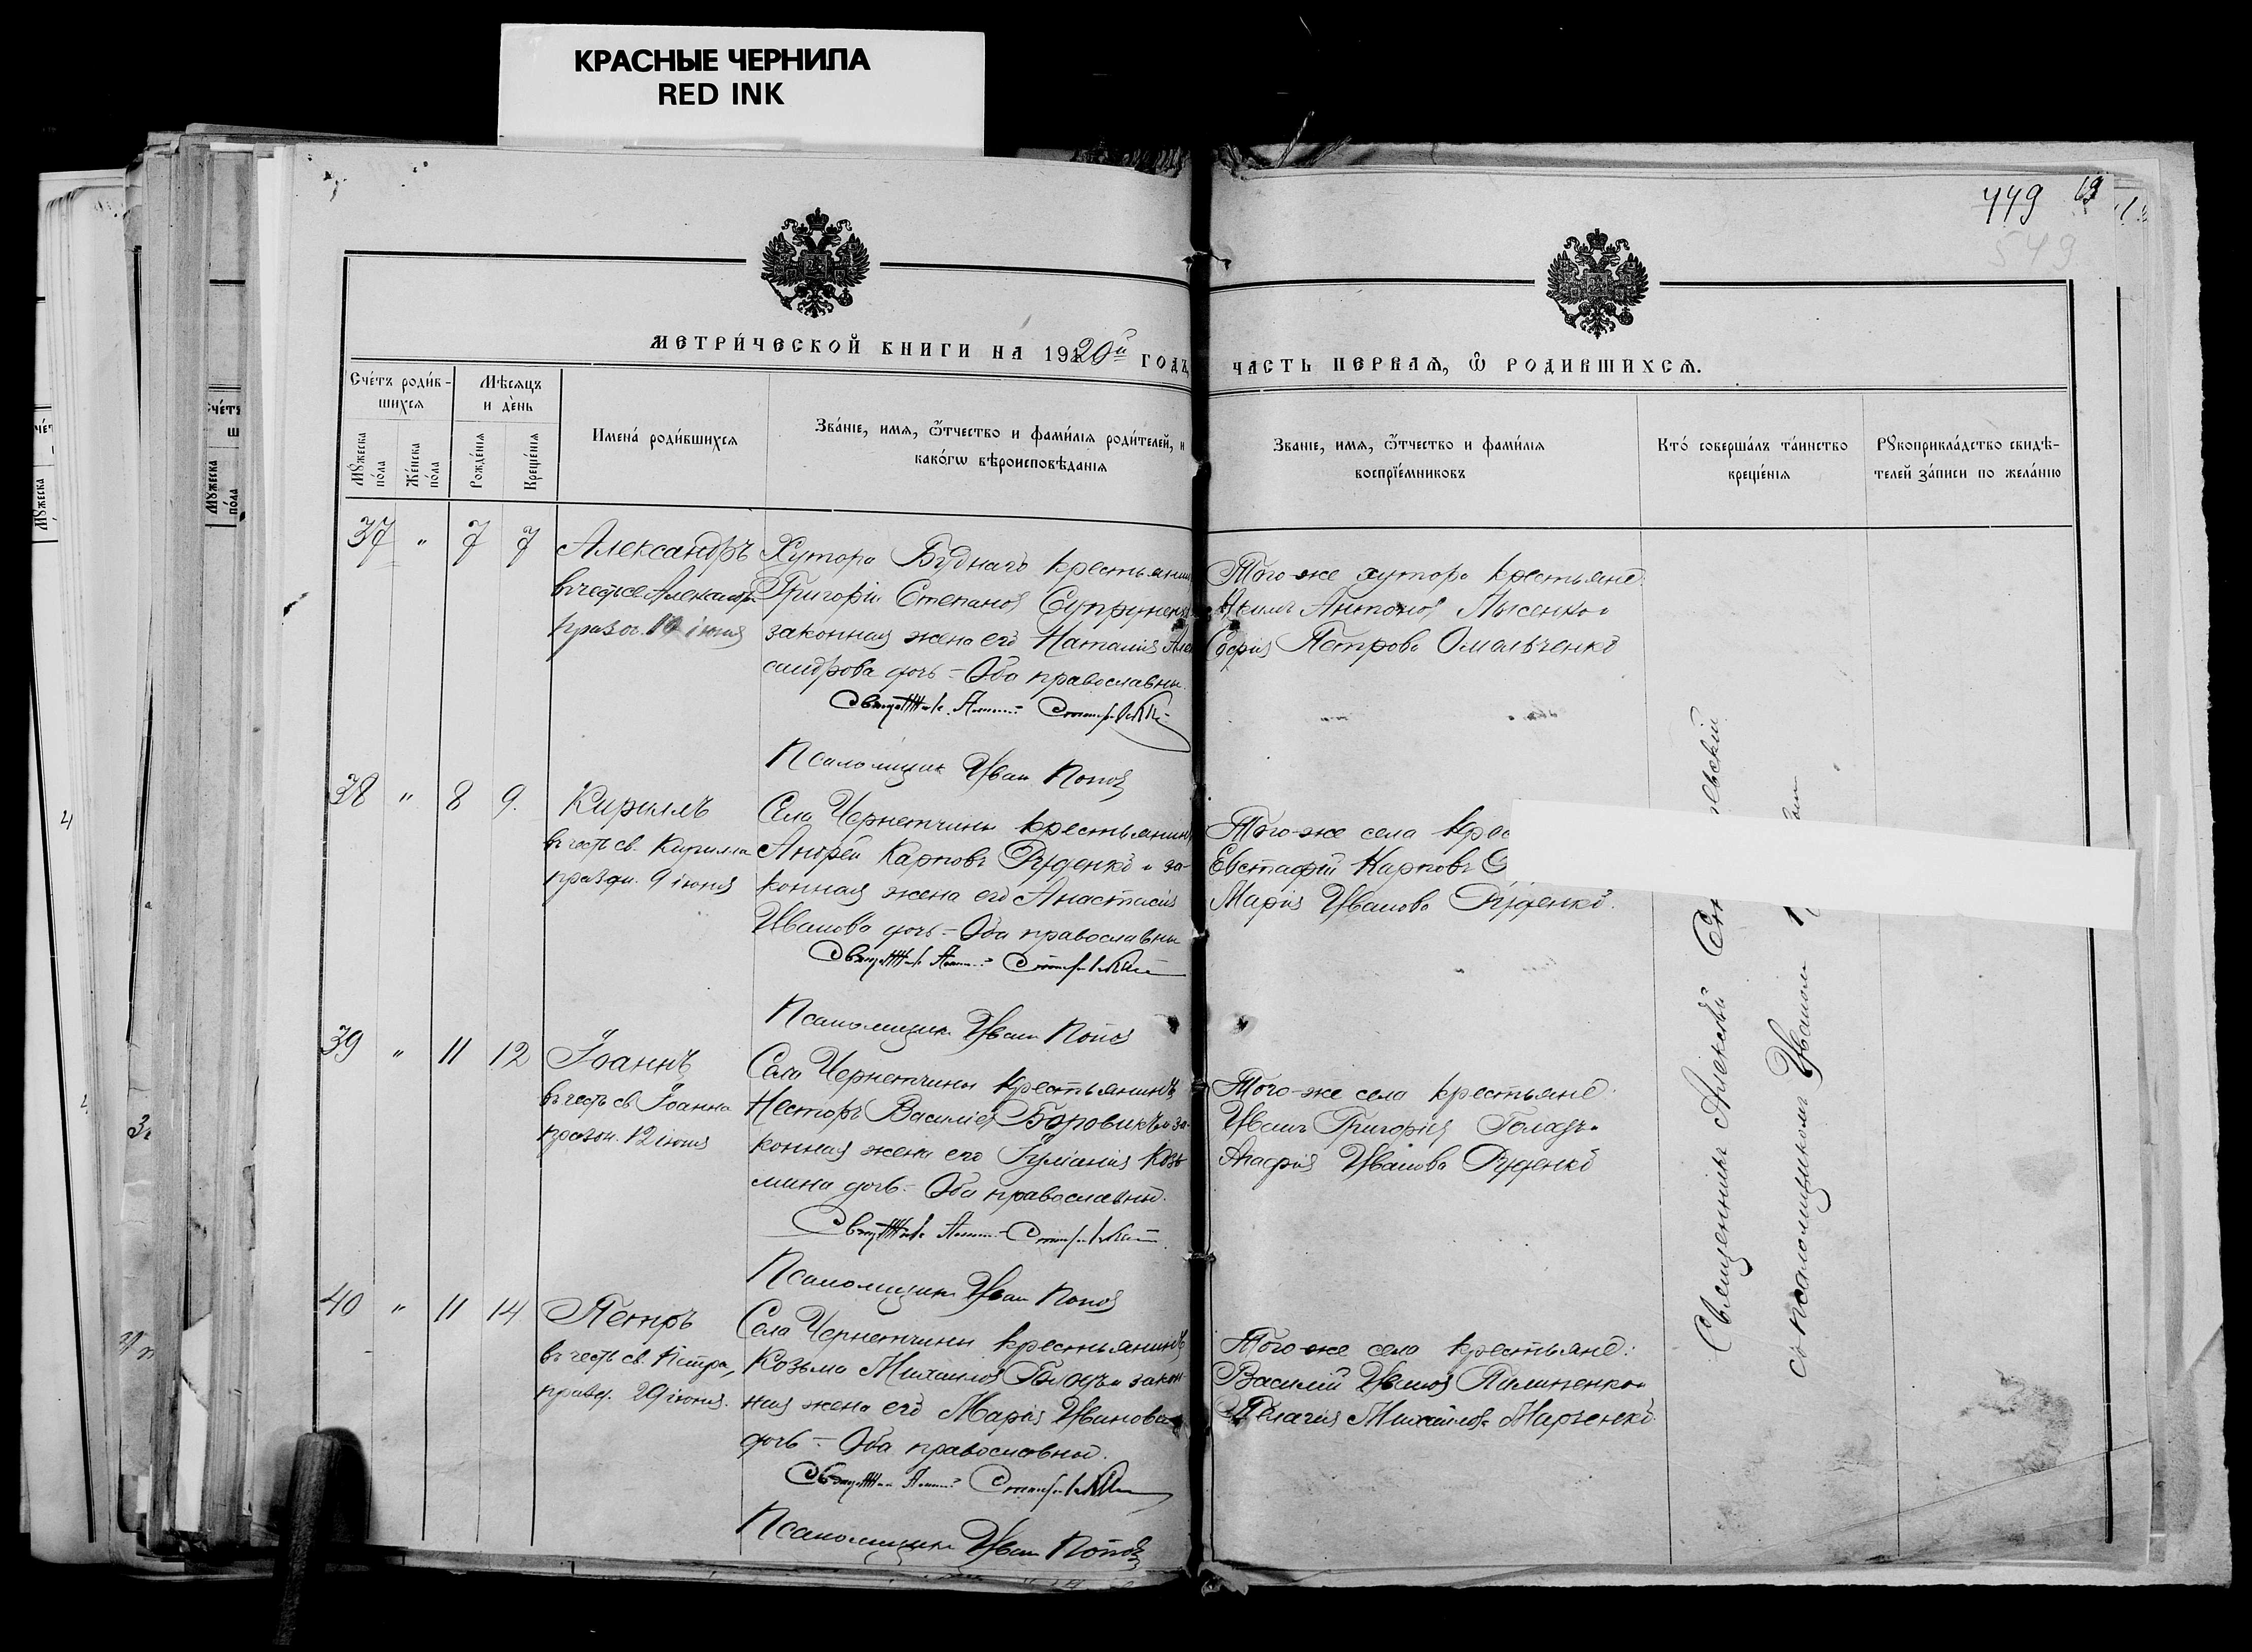 КРАСНЫЕ ЧЕРНИЛА
RED INK
449
549
МЕТРИ́ЧЕСКОЙ КНИГИ НА 1920й ГОДЪ,
ЧАСТЬ ПЕРВАѦ, Ѡ РОДИВШИХСѦ.
Сче́тъ роди́в-
шихсѧ
Мѣ́сѧцъ
и де́нь
Мꙋ́жеска по́ла
Же́нска по́ла
Рожде́нїѧ
Креще́нїѧ
Имена́ роди́вшихсѧ
Зва́нїе, имѧ, ѻ҆́тчество и фами́лїѧ роди́телей, и
како́гѡ вѣроисповѣ́данїѧ
Зва́нїе, имѧ, ѻ҆́тчество и фами́лїѧ
воспрїе́мниковъ
Кто́ соверша́лъ та́инство
креще́нїѧ
Рꙋкоприкла́дство свидѣ́-
телей за́писи по жела́нїю
37 " 7 7
Александръ
празд. іюня
Хутора Буднаго крестьянин
Григорій Степановъ Супруненко
законная жена его Наталія Алек
сандрова дочь - Оба православны.
Псаломщик Иван Попов
Того-же хутора крестьяне:
Антонов Лысенко и
Софія Петрова Омельченко
38 " 8 9.
Кириллъ
въ честь св. Кирилла
праздн. 9 іюня
Села Чернетчины крестьянинъ
Андрей Карповъ Руденко и за-
конная жена его Анастасія
Иванова дочь - Оба православны
Псаломщик Иван Попов
Того-же села крес
Евстафій Карповъ
Марія Иванова Руденко.
39 " 11 12
Іоаннъ
въ честь св. Іоанна
праздн. 12 іюня
Села Чернетчины крестьянинъ
Несторъ Василіев Боровикъ и за-
конная жена его Іуліанія Козь
мина дочь - Оба православны.
Псаломщик Иван Попов
Того-же села крестьяне:
Иванъ Григоріев Голадъ и
Агафія Иванова Руденко
40 " 11 14
Петръ
въ честь св. Петра,
празд. 29 іюня.
Села Чернетчины крестьянинъ
Козьма Михаилов и закон
ная жена его Марія Иванова
дочь - Оба православны.
Псаломщик Иван Попов
Того-же села крестьяне:
Василій Иванов и
Пелагія Михайлова Марченко.
Священникъ Алексѣй
съ псаломщикомъ Иваном